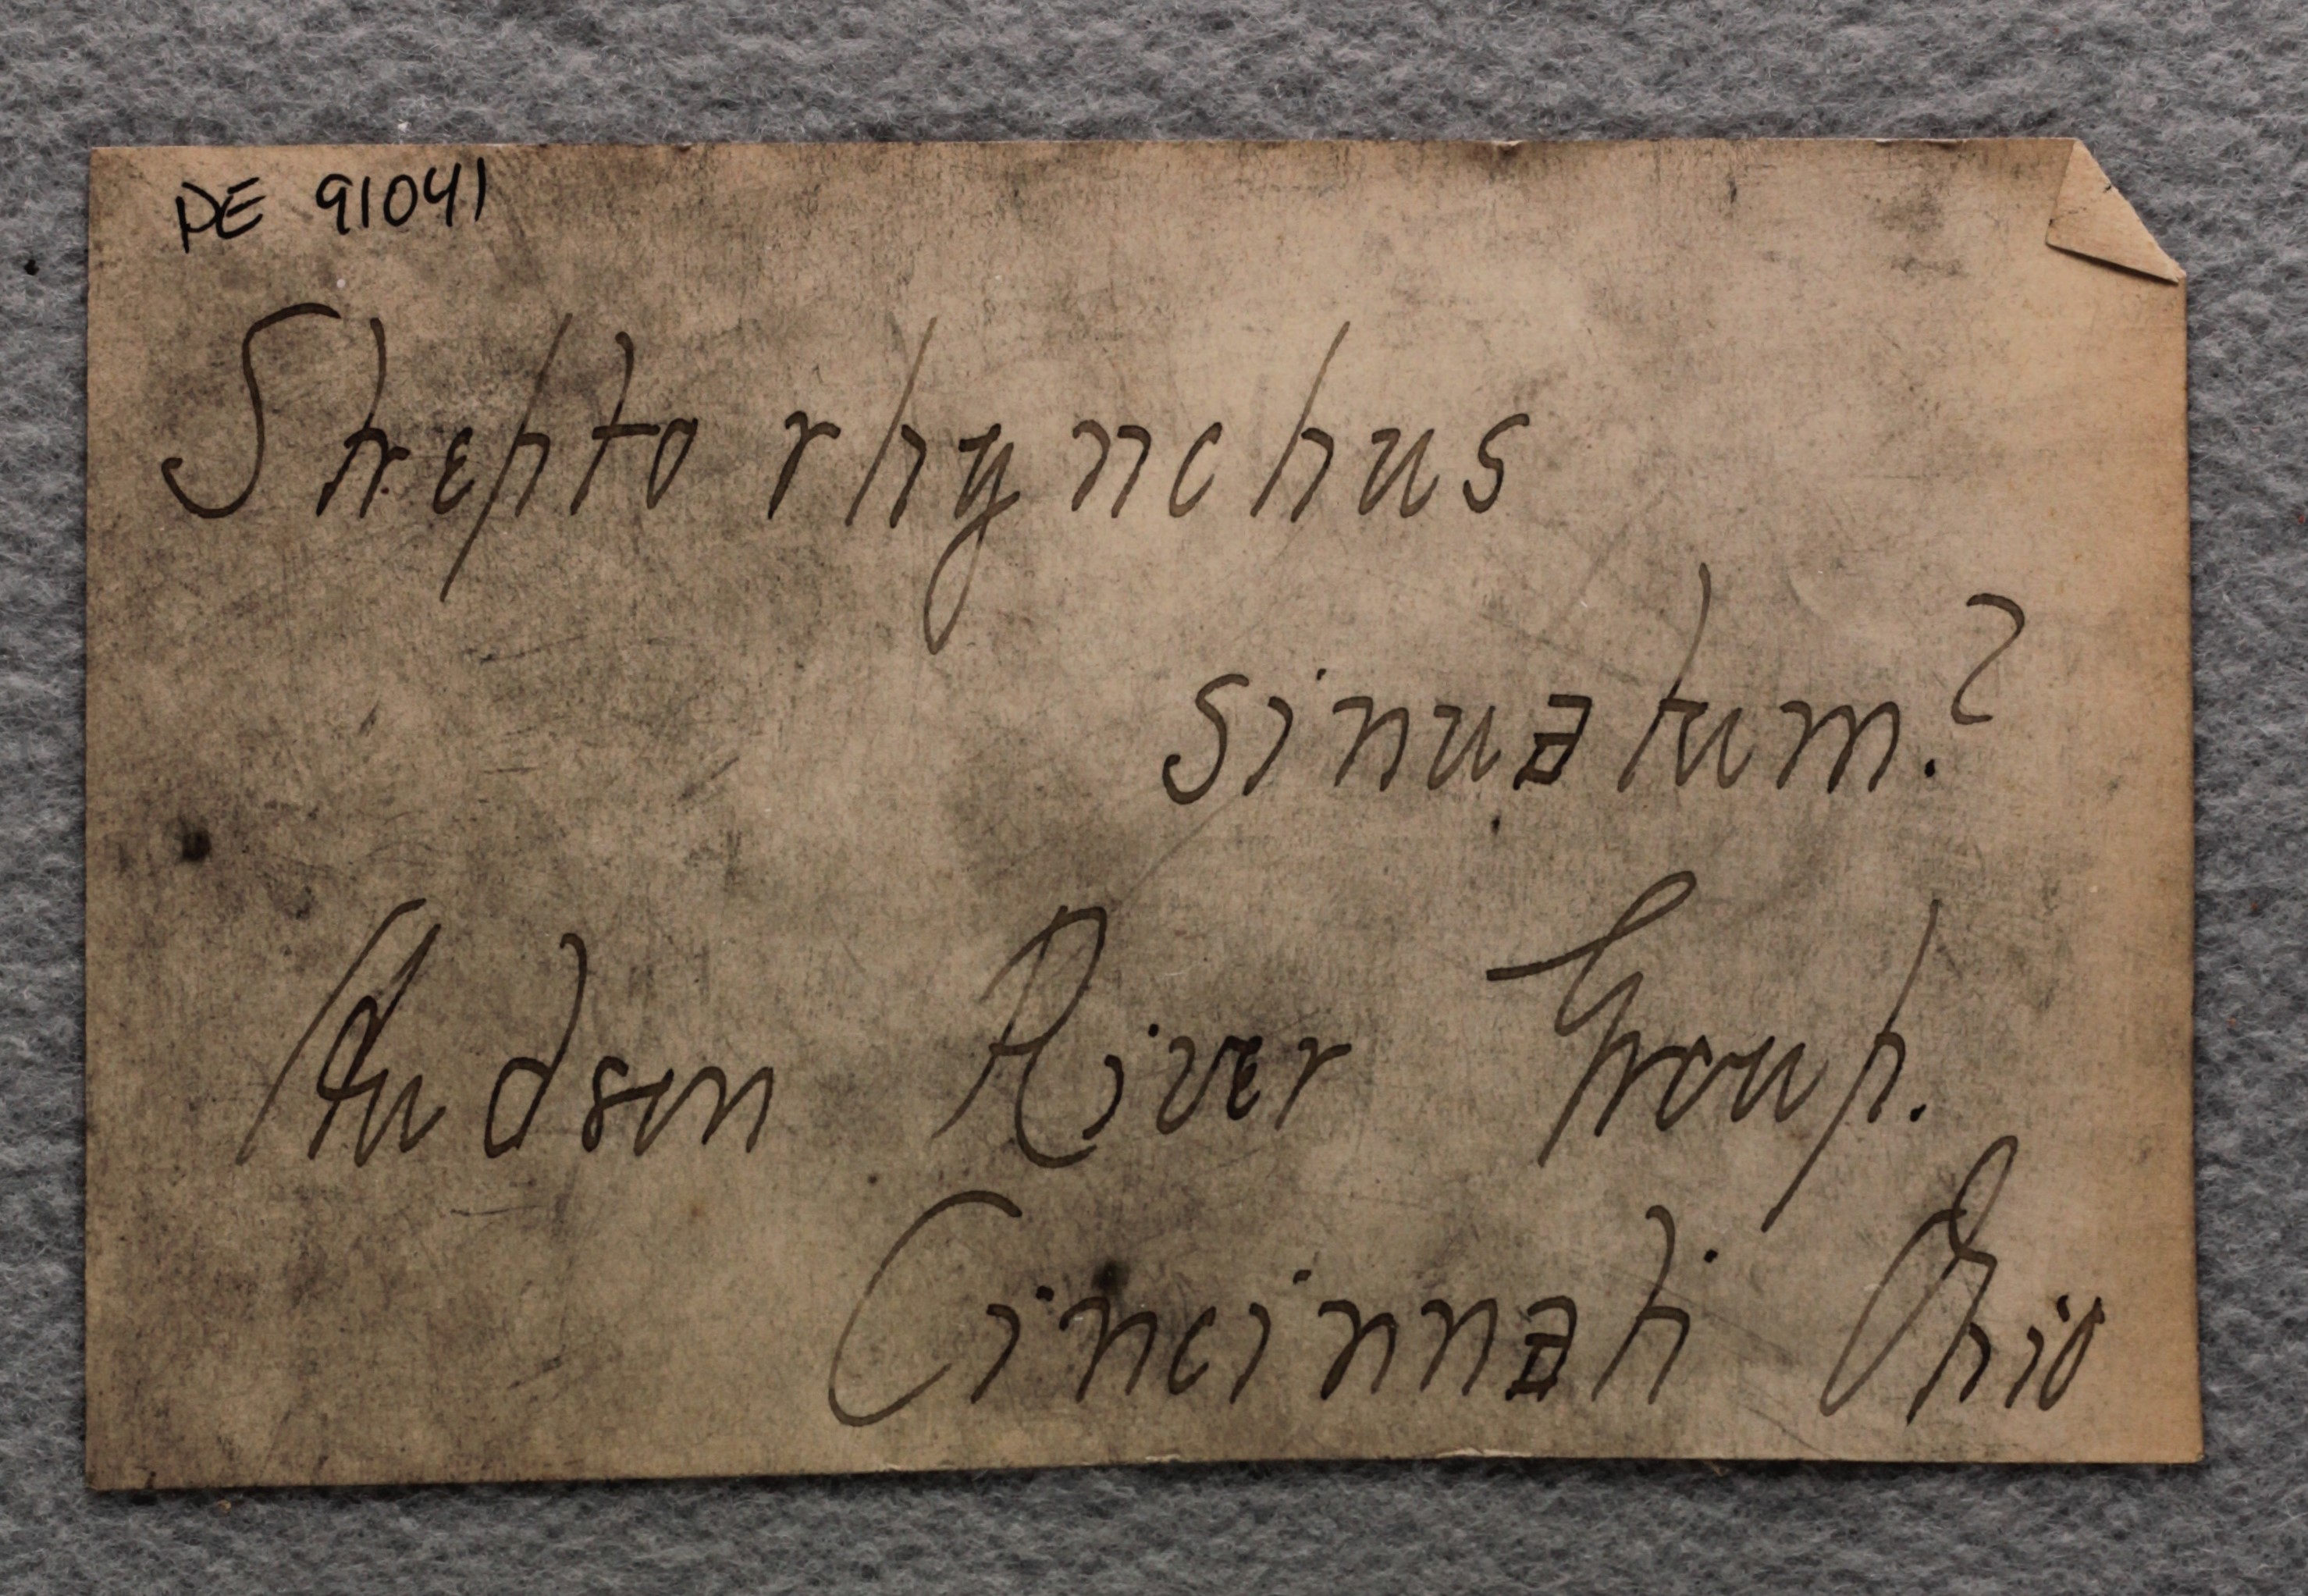 PE 91041
Streptorhynchus
sinuatum?
Hudson River Group.
Cincinnati Ohio